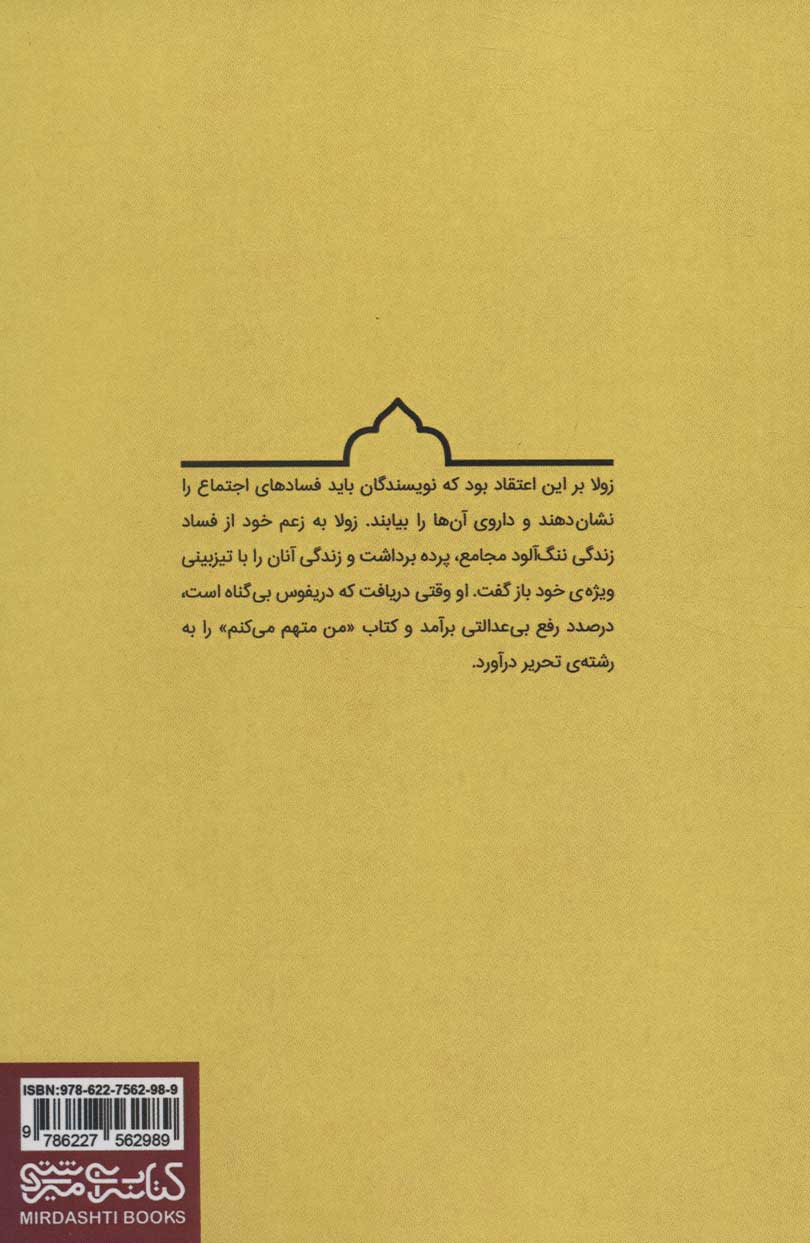 زولا بر این اعتقاد بود که نویسندگان باید فسادهای اجتماع را
نشان‌دهند و داروی آن‌ها را بیابند. زولا به زعم خود از فساد
زندگی ننگ‌آلود مجامع، پرده برداشت و زندگی آنان را با تیزبینی
ویژه‌ی خود باز گفت. او وقتی دریافت که دریفوس بی‌گناه است،
درصدد رفع بی‌عدالتی برآمد و کتاب «من متهم می‌کنم» را به
رشته‌ی تحریر درآورد.
ISBN:978-622-7562-98-9
9 786227 562989
کتابسرای میردشتی
MIRDASHTI BOOKS